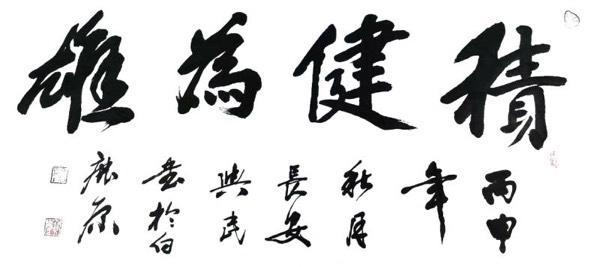 積健為雄
丙申
年
秋月
長安
興武
書於白
鹿原